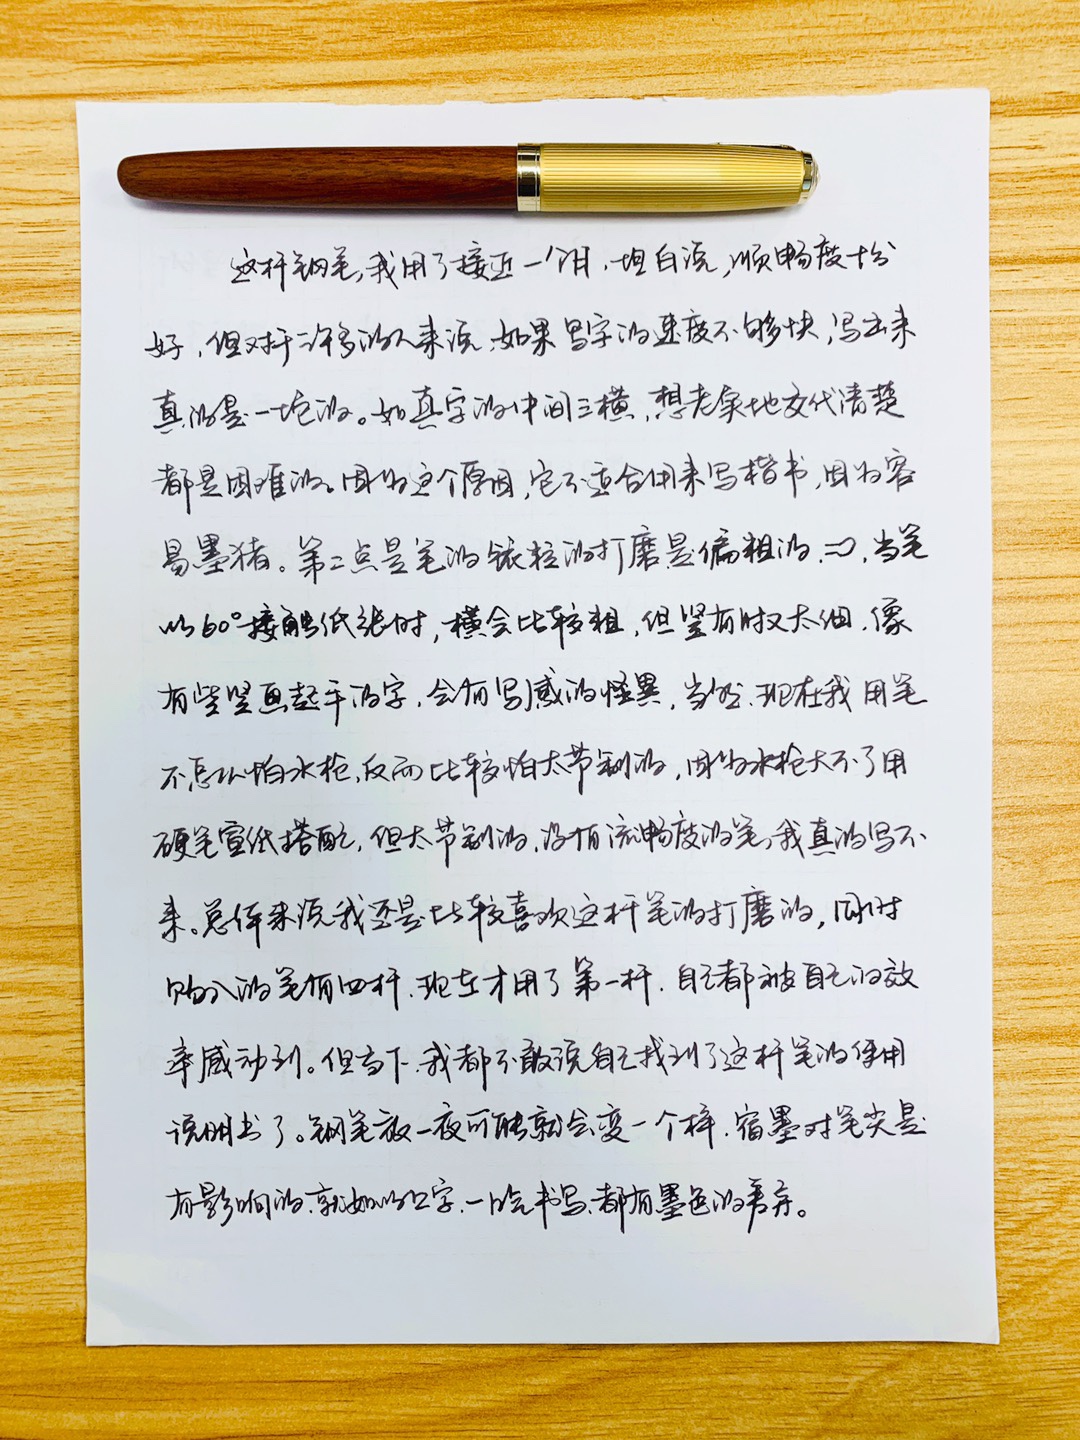 这杆钢笔,我用了接近一个月,坦白说,顺畅度十分
好,但对于许多的人来说,如果写字的速度不够快,写出来
真的是一坨的。如真字的中间三横,想老实地交代清楚
都是困难的。因为这个原因,它不适合用来写楷书,因为容
易墨猪。第二点是笔的铱粒的打磨是偏粗的,当笔
以60°接触纸张时,横会比较粗,但竖有时又太细,像
有些竖画起手的字,会有写感的怪异,当然,现在我用笔
不怎么怕水枪,反而比较怕太节制的,因为水枪大不了用
硬笔宣纸搭配,但太节制的,没有流畅度的笔,我真的写不
来。总体来说我还是比较喜欢这杆笔的打磨的,同时
购入的笔有四杆,现在才用了第一杆,自己都被自己的效
率感动到。但当下,我都不敢说自己找到了这杆笔的使用
说明书了。钢笔放一夜可能就会变一个样,宿墨对笔尖是
有影响的,就如以上字,一晚书写,都有墨色的差异。